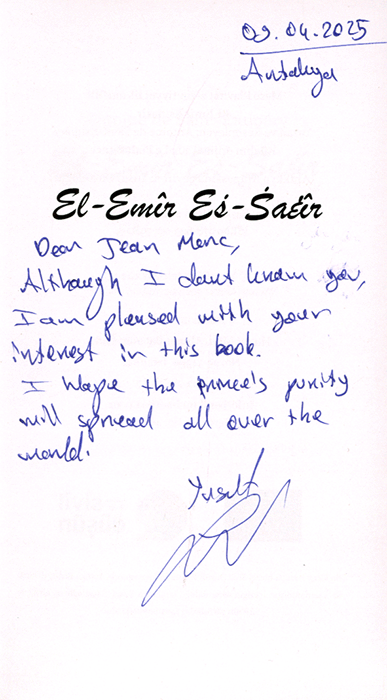 09.04.2025
Antakya
El-Emîr Es-Saġîr
Dear Jean Marc,
Although I don't know you,
I am pleased with your
interest in this book.
I hope the prince's purity
will spread all over the
world.
Yusuf